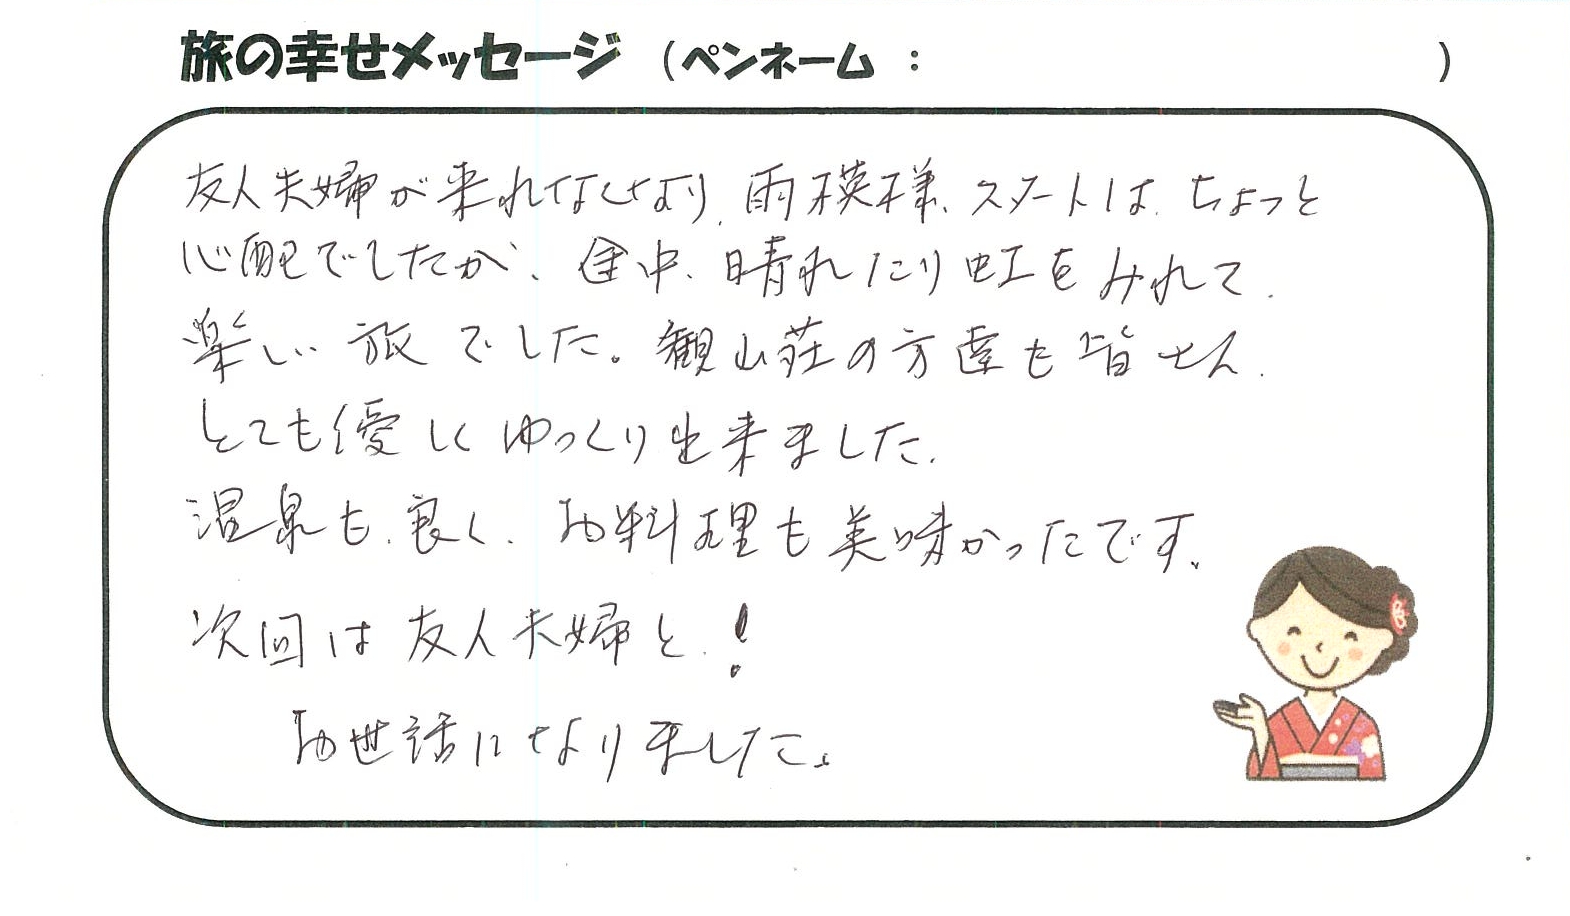 旅の幸せメッセージ （ペンネーム ： ）
友人夫婦が来れなくなり、雨模様、スタートは、ちょっと
心配でしたが、途中、晴れたり虹をみれて、
楽しい旅でした。観山荘の方達も皆さん、
とても優しくゆっくり出来ました。
温泉も、良く、お料理も美味かったです。
次回は友人夫婦と、！
お世話になりました。